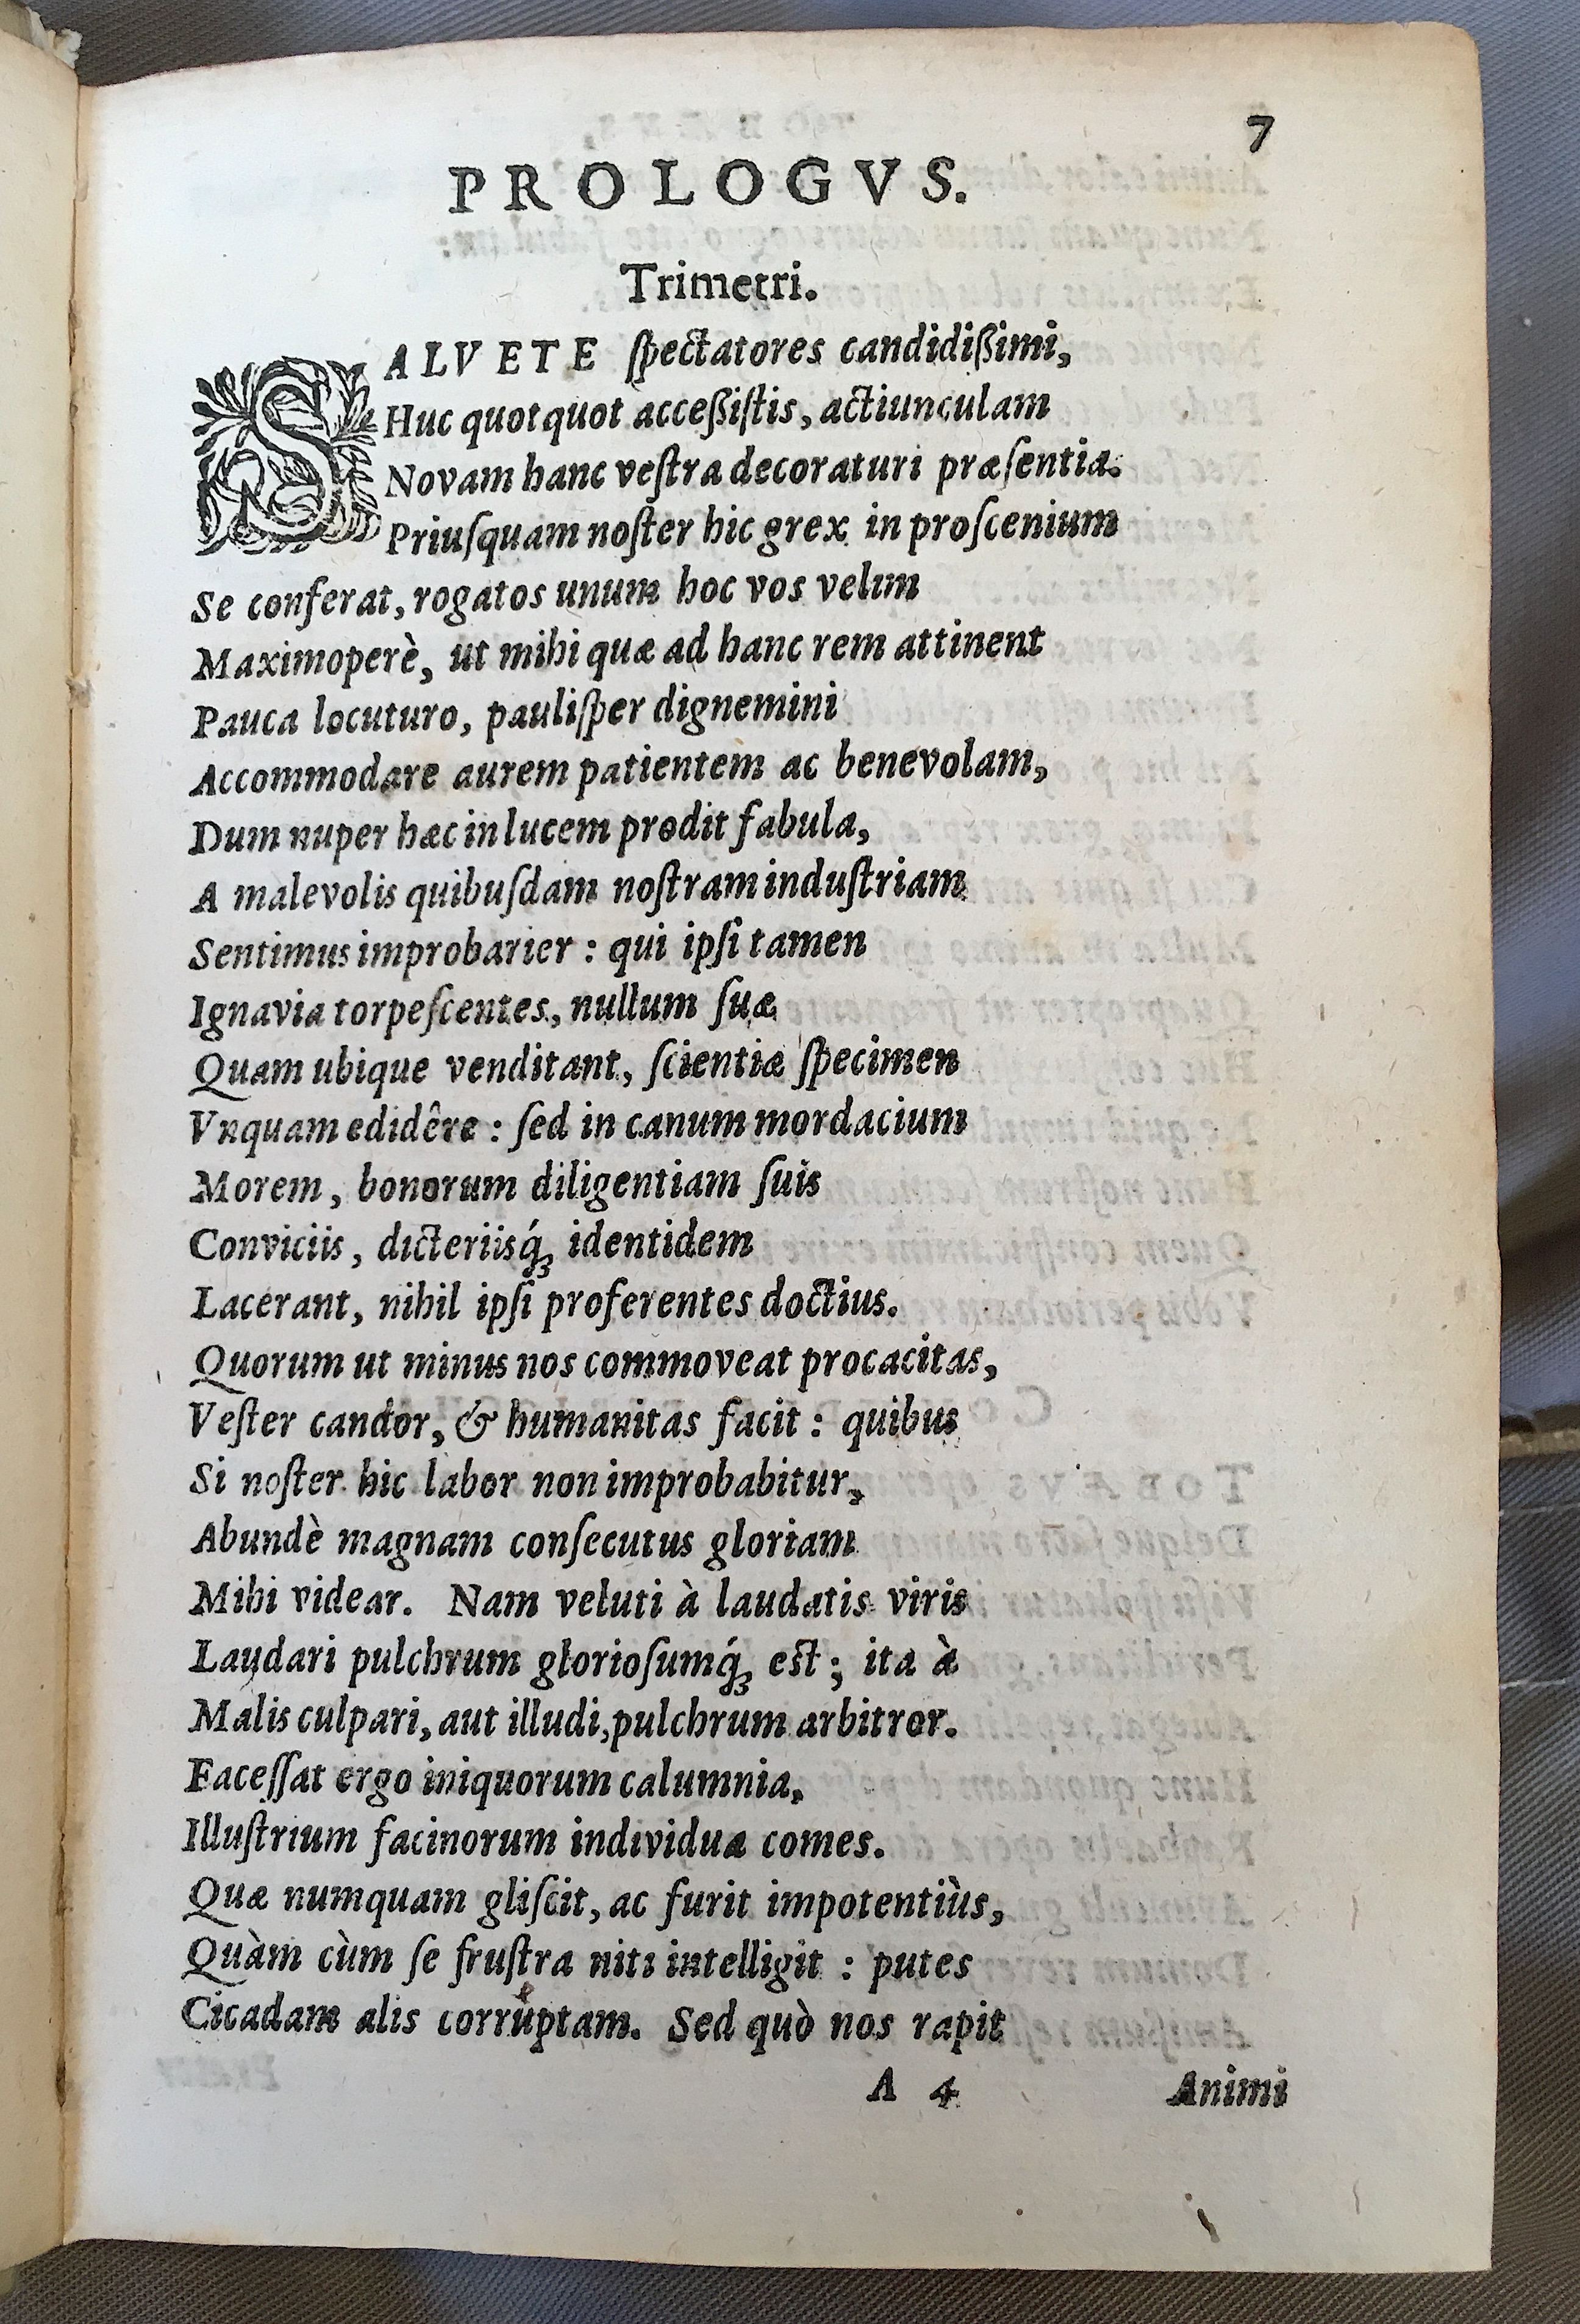 7
PROLOGVS.
Trimetri.
SALVETE ſpectatores candidißimi,
Huc quotquot acceßiſtis, actiunculam
Novam hanc veſtra decoraturi præſentia.
Priuſquam noſter hic grex in proſcenium
Se conferat, rogatos unum hoc vos velim
Maximoperè, ut mihi quæ ad hanc rem attinent
Pauca locuturo, pauliſper dignemini
Accommodare aurem patientem ac benevolam,
Dum nuper hæc in lucem prodit fabula,
A malevolis quibuſdam noſtram induſtriam
Sentimus improbarier : qui ipſi tamen
Ignavia torpeſcentes, nullum ſuæ
Quam ubique venditant, ſcientiæ ſpecimen
Vnquam edidêre : ſed in canum mordacium
Morem, bonorum diligentiam ſuis
Conviciis, dicteriisq́ꝫ identidem
Lacerant, nihil ipſi proferentes doctius.
Quorum ut minus nos commoveat procacitas,
Veſter candor, & humanitas facit : quibus
Si noſter hic labor non improbabitur,
Abundè magnam conſecutus gloriam
Mihi videar. Nam veluti à laudatis viris
Laudari pulchrum glorioſumq́ꝫ est ; ita à
Malis culpari, aut illudi, pulchrum arbitror.
Faceſſat ergo iniquorum calumnia,
Illuſtrium facinorum individuæ comes.
Quæ numquam gliſcit, ac furit impotentiùs,
Quàm cùm ſe fruſtra niti intelligit : putes
Cicadam alis corruptam. Sed quò nos rapit
A 4 Animi